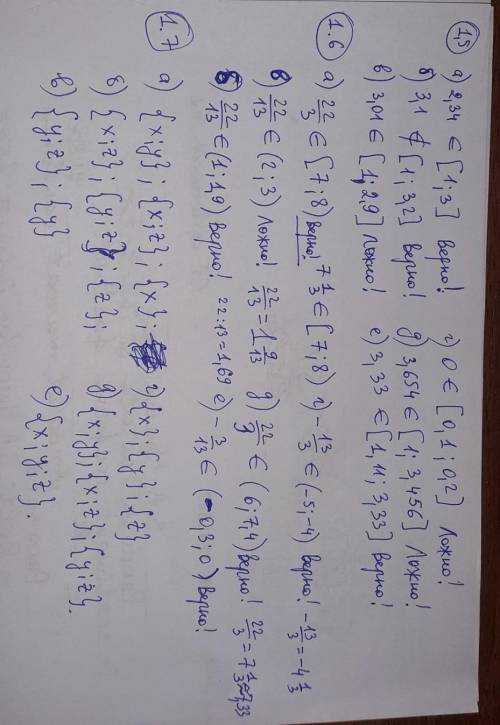 1,5 а) 2,34 ∈ [1; 3] верно! г) 0 ∈ [0,1; 0,2] Ложно!
б) 3,1 ∉ [1; 3,2] верно! д) 3,654 ∈ [1; 3,456] Ложно!
в) 3,01 ∈ [1; 2,9] Ложно! е) 3,33 ∈ [1,11; 3,33] верно!
1.6 а) 22/3 ∈ [7; 8) верно! 7 1/3 ∈ [7; 8) г) -13/3 ∈ (-5; -4) верно! -13/3 = -4 1/3
в) 22/13 ∈ (2; 3) Ложно! 22/13 = 1 9/13 д) 22/3 ∈ (6; 7,4) верно! 22/3 = 7 1/3 ≈ 7,33
б) 22/13 ∈ (1; 1,9) верно! 22:13 = 1,69 е) -3/13 ∈ (-0,3; 0) верно!
1.7 а) {x; y}; {x; z}; {x}; г) {x}; {y}; {z}
б) {x; z}; {y; z}; {z}; д) {x; y}; {x; z}; {y; z}.
в) {y; z}; {y} е) {x; y; z}.